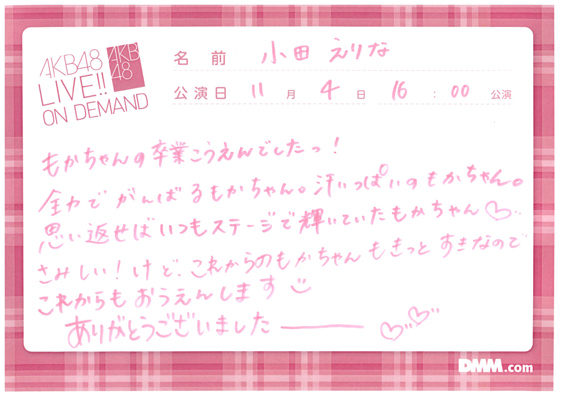 AKB48
LIVE!!
ON DEMAND
AKB
48
名前 小田 えりな
公演日 11月 4日 16:00 公演
もかちゃんの卒業こうえんでしたっ!
全力でがんばるもかちゃん。汗いっぱいのもかちゃん。
思い返せばいつもステージで輝いていたもかちゃん♡
さみしい!けど、これからのもかちゃんもきっとすきなので
これからもおうえんします
ありがとうございましたーーー♡♡
DMM.com